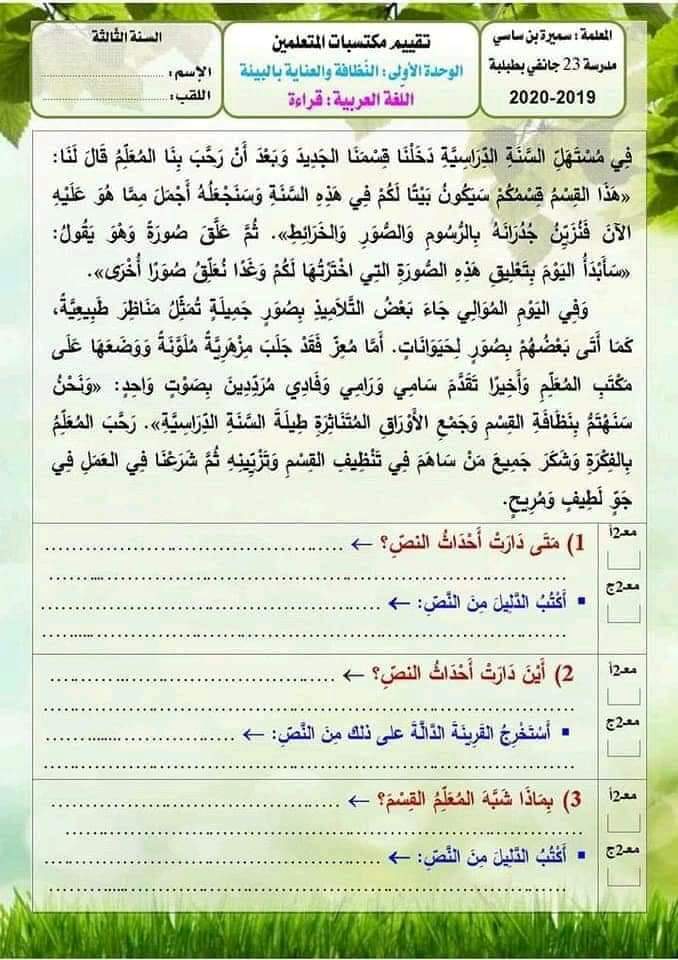 المعلمة : سميرة بن ساسي
مدرسة 23 جانفي بطبلبة
2020-2019
تقييم مكتسبات المتعلمين
الوحدة الأولى : النظافة والعناية بالبيئة
اللغة العربية : قراءة
السنة الثالثة
الإسم : ........................
اللقب: ........................
فِي مُسْتَهَلِّ السَّنَةِ الدِّرَاسِيَّةِ دَخَلْنَا قِسْمَنَا الجَدِيدَ وَبَعْدَ أَنْ رَحَّبَ بِنَا المُعَلِّمُ قَالَ لَنَا:
«هَذَا القِسْمُ قِسْمُكُمْ سَيَكُونُ بَيْتًا لَكُمْ فِي هَذِهِ السَّنَةِ وَسَنَجْعَلُهُ أَجْمَلَ مِمَّا هُوَ عَلَيْهِ
الآنَ فَنُزَيِّنُ جُدْرَانَهُ بِالرُّسُومِ وَالصُّوَرِ وَالخَرَائِطِ». ثُمَّ عَلَّقَ صُورَةً وَهُوَ يَقُولُ:
«سَأَبْدَأُ اليَوْمَ بِتَعْلِيقِ هَذِهِ الصُّورَةِ التِي اخْتَرْتُهَا لَكُمْ وَغَدًا نُعَلِّقُ صُوَرًا أُخْرَى».
وَفِي اليَوْمِ المُوَالِي جَاءَ بَعْضُ التَّلَامِيذِ بِصُوَرٍ جَمِيلَةٍ تُمَثِّلُ مَنَاظِرَ طَبِيعِيَّةً،
كَمَا أَتَى بَعْضُهُمْ بِصُوَرٍ لِحَيَوَانَاتٍ. أَمَّا مُعِزّ فَقَدْ جَلَبَ مِزْهَرِيَّةً مُلَوَّنَةً وَوَضَعَهَا عَلَى
مَكْتَبِ المُعَلِّمِ وَأَخِيرًا تَقَدَّمَ سَامِي وَرَامِي وَفَادِي مُرَدِّدِينَ بِصَوْتٍ وَاحِدٍ: «وَنَحْنُ
سَنَهْتَمُّ بِنَظَافَةِ القِسْمِ وَجَمْعِ الأَوْرَاقِ المُتَنَاثِرَةِ طِيلَةَ السَّنَةِ الدِّرَاسِيَّةِ». رَحَّبَ المُعَلِّمُ
بِالفِكْرَةِ وَشَكَرَ جَمِيعَ مَنْ سَاهَمَ فِي تَنْظِيفِ القِسْمِ وَتَزْيِينِهِ ثُمَّ شَرَعْنَا فِي العَمَلِ فِي
جَوٍّ لَطِيفٍ وَمُرِيحٍ.
معـ2أ
1) مَتَى دَارَتْ أَحْدَاثُ النصِّ؟ ← ........................................
................................................................
معـ2ج
▪ أَكْتُبُ الدَّلِيلَ مِنَ النَّصِّ: ← ........................................
................................................................
معـ2أ
2) أَيْنَ دَارَتْ أَحْدَاثُ النصِّ؟ ← ........................................
................................................................
معـ2ج
▪ أَسْتَخْرِجُ القَرِينَةَ الدَّالَّةَ على ذلك مِنَ النَّصِّ: ← ........................
................................................................
معـ2أ
3) بِمَاذَا شَبَّهَ المُعَلِّمُ القِسْمَ؟ ← ........................................
................................................................
معـ2ج
▪ أَكْتُبُ الدَّلِيلَ مِنَ النَّصِّ: ← ........................................
................................................................